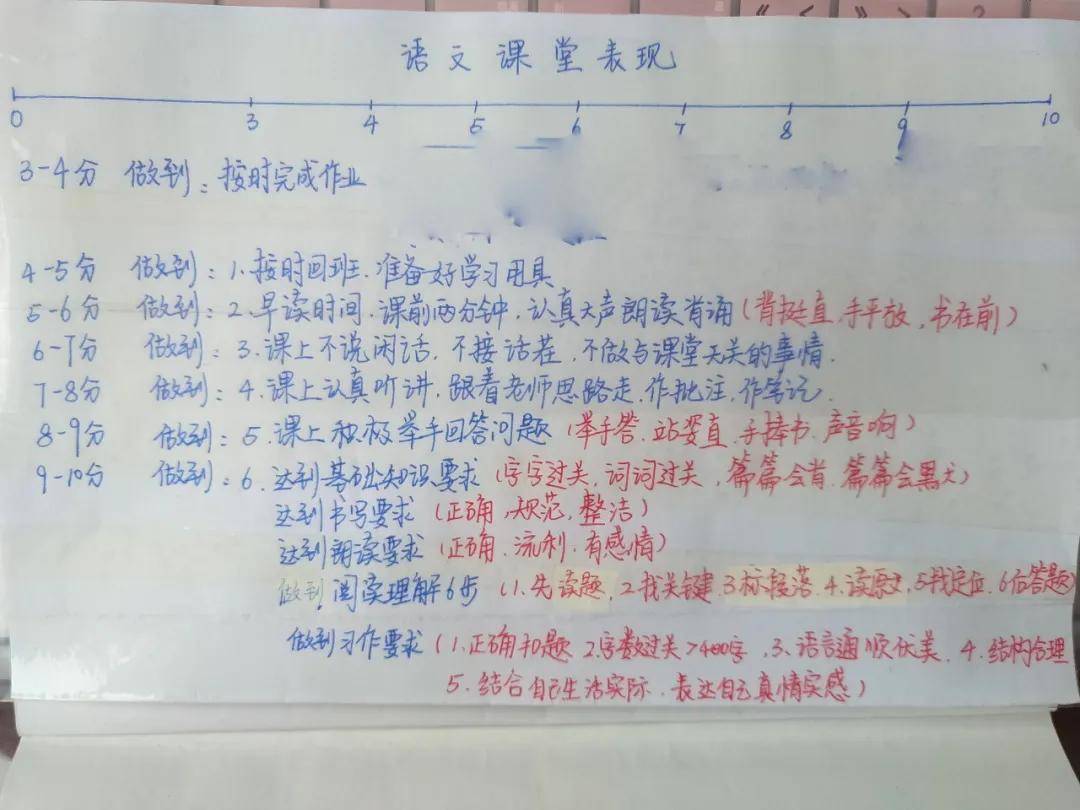 语文课堂表现
0 3 4 5 6 7 8 9 10
3-4分 做到:按时完成作业
4-5分 做到:1.按时回班.准备好学习用具
5-6分 做到:2.早读时间.课前两分钟.认真大声朗读背诵(背挺直.手平放.书在前)
6-7分 做到:3.课上不说闲话,不接话茬,不做与课堂无关的事情.
7-8分 做到:4.课上认真听讲,跟着老师思路走.作批注.作笔记.
8-9分 做到:5.课上积极举手回答问题(举手答.站姿直.手捧书.声音响)
9-10分 做到:6.达到基础知识要求(字字过关,词词过关,篇篇会背.篇篇会默)
达到书写要求(正确,规范,整洁)
达到朗读要求(正确.流利.有感情)
做到阅读理解6步(1.先读题,2找关键.3标段落.4.读原文,5找定位.6后答题)
做到习作要求(1.正确扣题 2.字数过关>400字,3.语言通顺优美.4.结构合理
5.结合自己生活实际.表达自己真情实感)